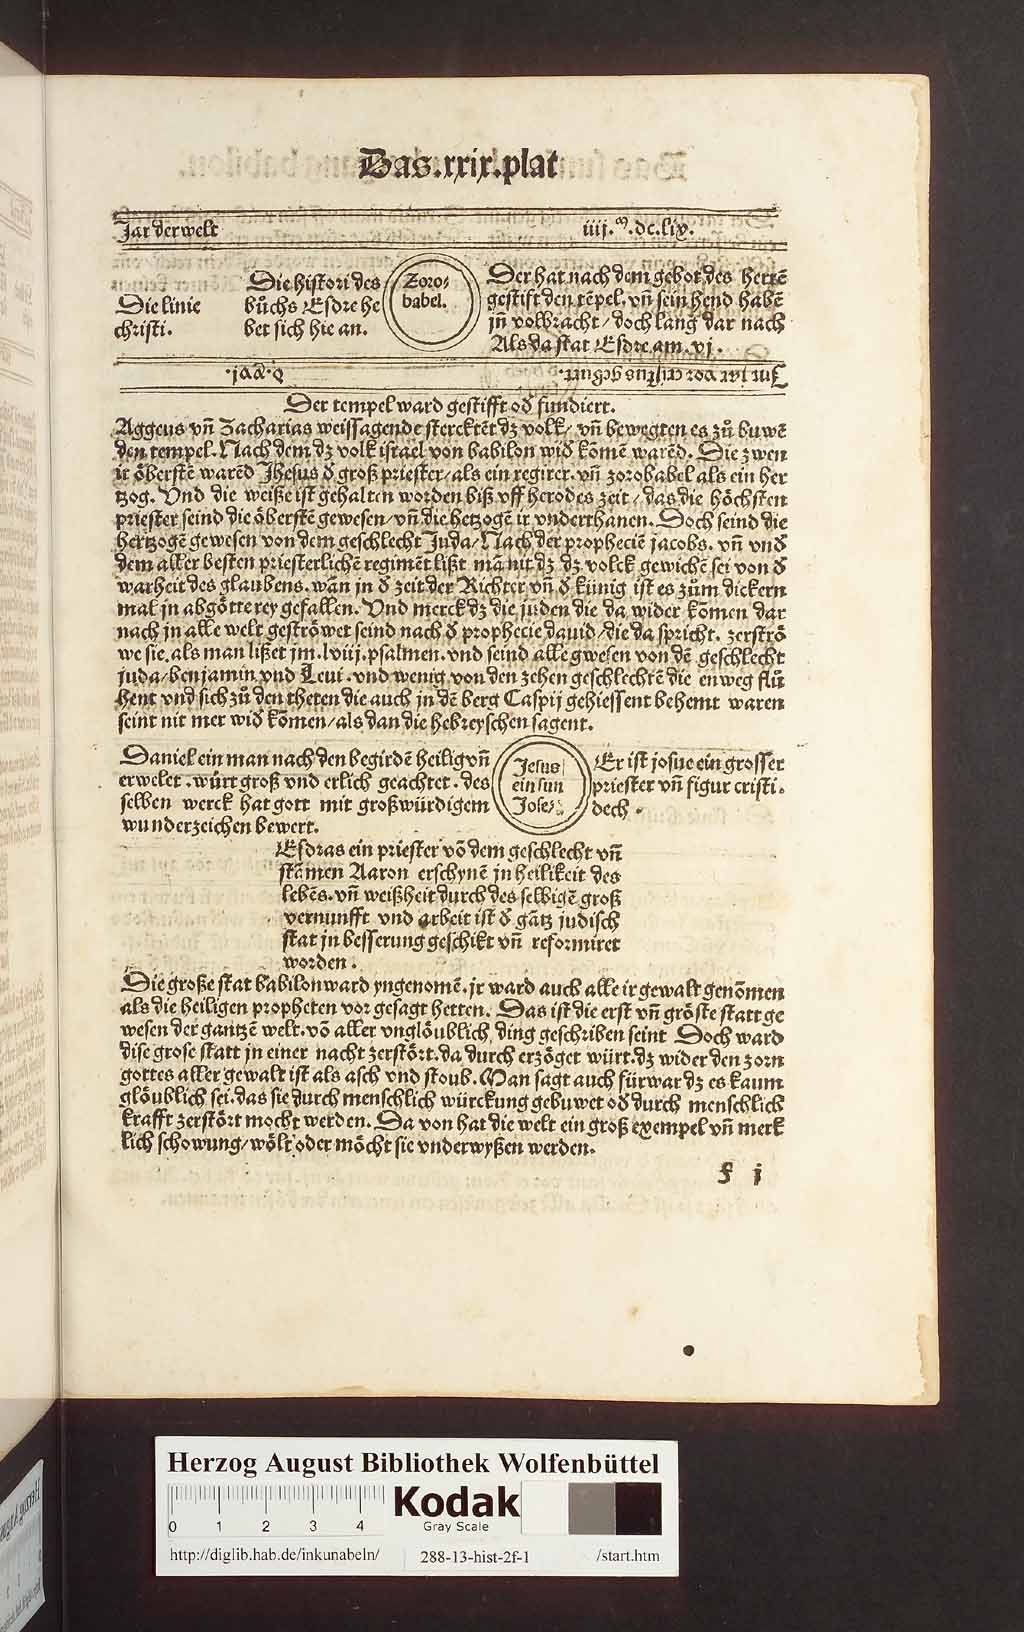 Das .xxix. plat
Jar der welt
iiij.ͫ .dc.lix.
Die linie
christi.
Die histori des
bůchs Esdre he
bet sich hie an.
Zoro⸗
babel.
Der hat nach dem gebot des herrē
gestift den tēpel. vn̄ sein hend habē
jn̄ volbracht / doch lang dar nach
Als da stat Esdre am .vj.
Jm iar vor cristus geburt.
Der tempel ward gestifft od fundiert.
Aggeus vn̄ Zacharias weissagende sterckтēt dz volk / vn̄ bewegten es zů buwē
den tempel. Nach dem dz volk israel von babilon wid komē warēd. Die zwen
ir öberstē warēd Jhesus d groß priester / als ein regirer. vn̄ zorobabel als ein her
tzog. Vnd die weiße ist gehalten worden biß vff herodes zeit / das die höchsten
priester seind die öberstē gewesen / vn̄ die hetzogē ir vnderthanen. Doch seind die
hertzogē gewesen von dem geschlecht Juda / Nach der propheciē jacobs. vn̄ vnd
dem aller besten priesterlichē regimēt lißt mā nit dz dz volck gewichē sei von d
warheit des glaubens. wan̄ in d zeit der Richter vn̄ d künig ist es zům dickern
mal jn abgötterey gefallen. Vnd merck dz die juden die da wider komen dar
nach jn alle welt geströwet seind nach d prophecie dauid / die da spricht. zerströ
we sie. als man lißet jm .lviij. psalmen. vnd seind alle gwesen von dē geschlecht
juda / benjamin vnd Leui. vnd wenig von den zehen geschlechtē die enweg flů
hent vnd sich zů den theten die auch jn dē berg Caspij gehiessent behemt waren
seint nit mer wid komen / als dan die hebreyschen sagent.
Daniel ein man nach den begirdē heilig vn̄
erwelet. würt groß vnd erlich geachtet. des
selben werck hat gott mit großwürdigem
wunderzeichen bewert.
Jesus
ein sun
Josec⸗
Er ist josue ein grosser
priester vn̄ figur cristi.
dech.
Esdras ein priester vō dem geschlecht vn̄
stāmen Aaron erschynē jn heilikeit des
lebēs. vn̄ weißheit durch des selbigē groß
vernunfft vnd arbeit ist d gātz judisch
stat jn besserung geschikt vn̄ reformiret
worden.
Die große stat babilon ward yngenomē. jr ward auch alle ir gewalt genōmen
als die heiligen propheten vor gesagt hetten. Das ist die erst vn̄ gröste statt ge
wesen der gantzē welt. vō aller vnglöublich ding geschriben seint Doch ward
dise grose statt jn einer nacht zerstört. da durch erzöget würt. dz wider den zorn
gottes aller gewalt ist als asch vnd stoub. Man sagt auch fürwar dz es kaum
glöublich sei. das sie durch menschlich würckung gebuwet od durch menschlich
krafft zerstört mocht werden. Da von hat die welt ein groß exempel vn̄ merk
lich schowung / wölt oder möcht sie vnderwyßen werden.
f j
Herzog August Bibliothek Wolfenbüttel
0 1 2 3 4
Kodak
Gray Scale
http://diglib.hab.de/inkunabeln/ 288-13-hist-2f-1 /start.htm